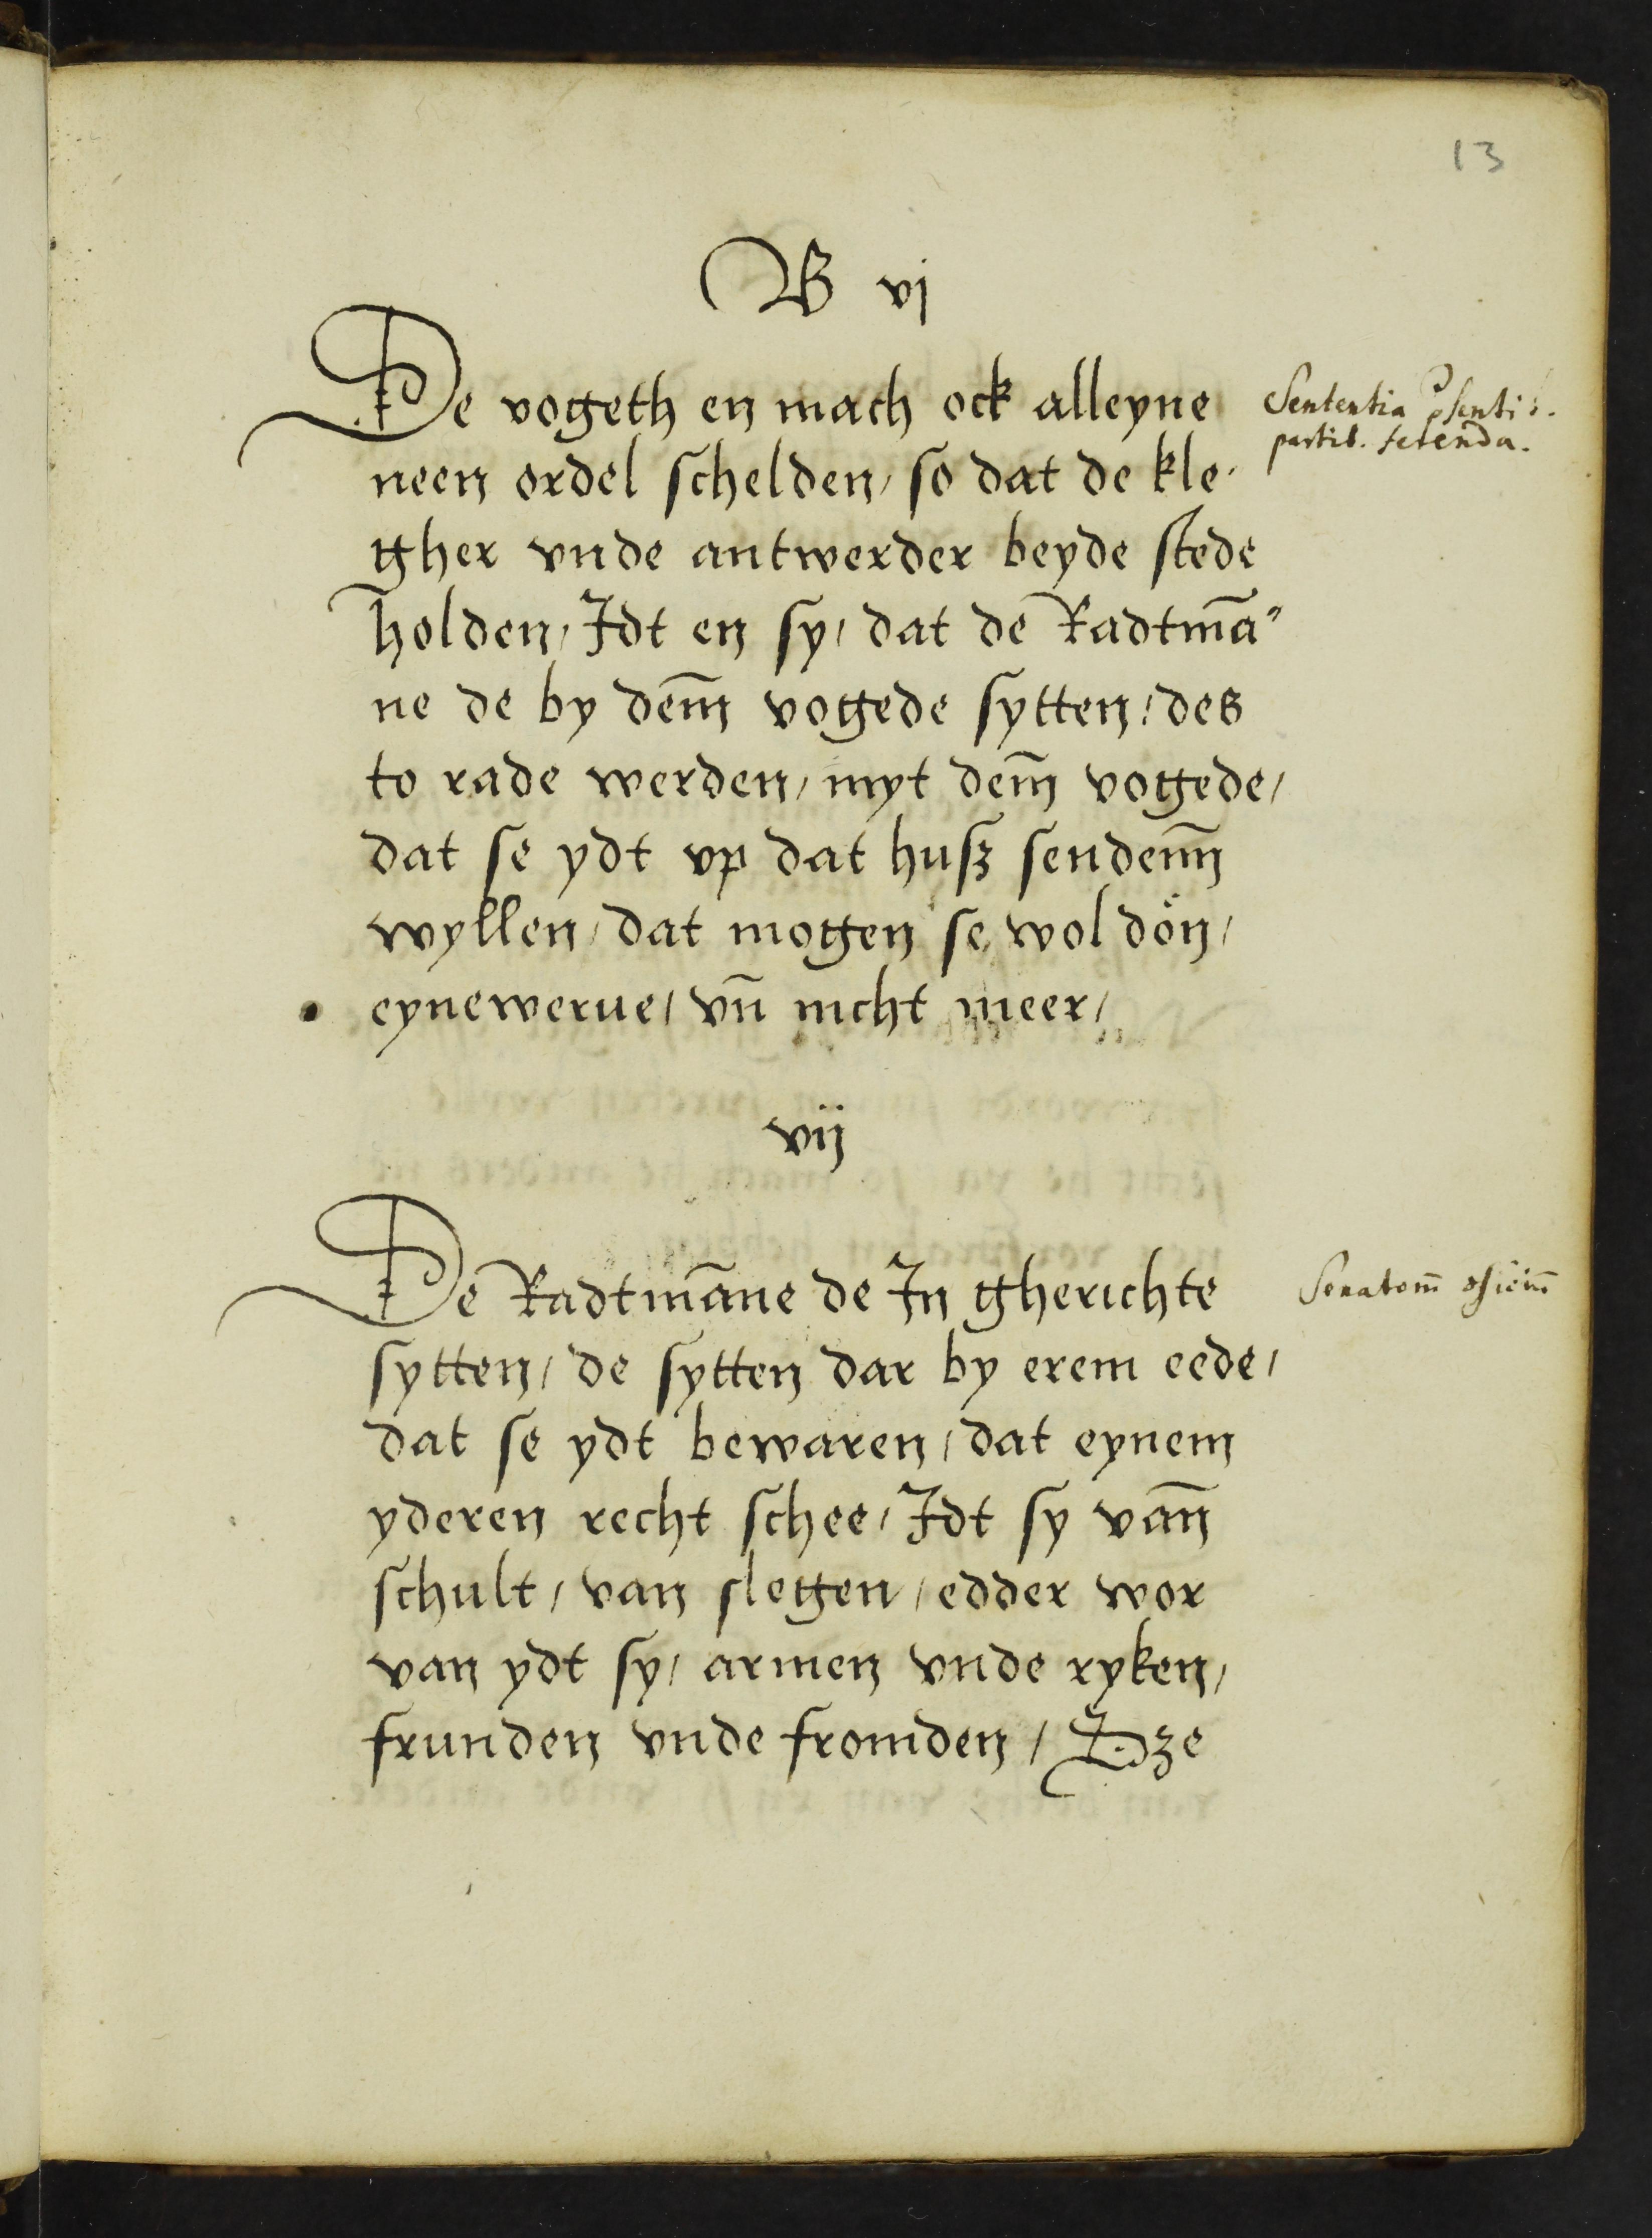 13
B vj
De vogeth en mach ock alleyne
neen ordel schelden, so dat de kle-
gher vnde antwerder beyde stede
holden, Idt en sy, dat de Radtmā-
ne de by dem̄ vogede sytten, des
to rade werden, myt dem̄ vogede,
dat se ydt vp dat husz sendenn̄
wyllen, dat mogen se wol dön,
eynewerue, vn̄ nicht meer,
Sententia
partib. ferenda.
vij
De Radtmāne de In gherichte
sytten, de sytten dar by erem eede,
dat se ydt bewaren, dat eynem
yderen recht schee, Idt sy van̄
schult, van slegen, edder wor
van ydt sy, armen vnde ryken,
frunden vnde fromden,
Senatorū